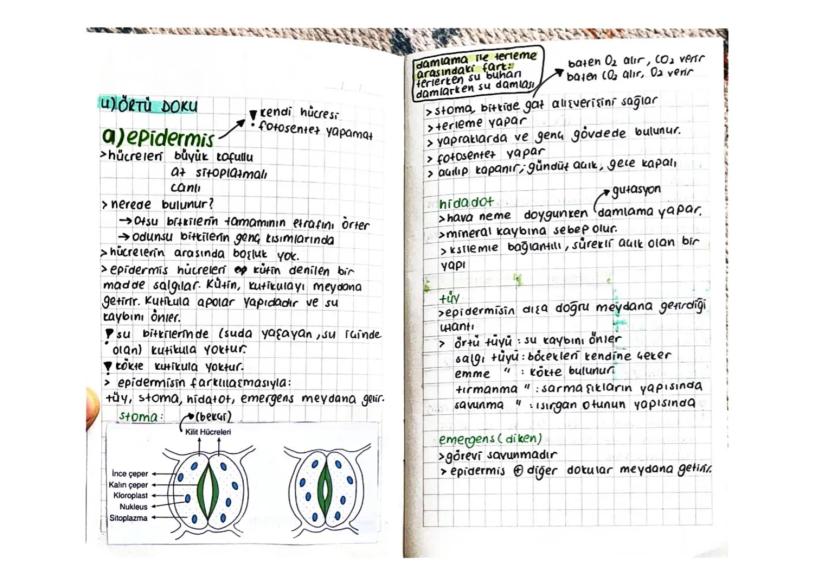 4) ÖRTÜ DOKU
kendi hücresi
fotosentez yapamaz
a) epidermis
> hücreleri büyük kofullu
az sitoplazmalı
canlı
> nerede bulunur?
→ otsu bitkilerin tamamının etrafını örter
→ odunsu bitkilerin genç kısımlarında
> hücrelerin arasında boşluk yok.
> epidermis hücreleri kütin denilen bir
madde salgılar. Kütin, kutikulayı meydana
getirir. Kutikula apolar yapıdadır ve su
kaybını önler.
su bitkilerinde (suda yaşayan, su içinde
olan) kutikula yoktur.
kökte kutikula yoktur.
> epidermisin farklılaşmasıyla:
tüy, stoma, hidatot, emergens meydana gelir.
stoma:
(bekçi)
Kilit Hücreleri
İnce çeper
Kalın çeper
Kloroplast
Nukleus
Sitoplazma
damlama ile terleme
arasındaki fark:
terlerken su buharı
damlarken su damlası
bazen O₂ alır, CO₂ verir
bazen CO₂ alır, O₂ verir
> stoma, bitkide gaz alışverişini sağlar
> terleme yapar
> yapraklarda ve genç gövdede bulunur.
> fotosentez yapar
> açılıp kapanır; gündüz açık, gece kapalı
hidadot
gutasyon
> hava neme doygunken damlama yapar.
> mineral kaybına sebep olur.
> ksilemle bağlantılı, sürekli açık olan bir
yapı
tüy
> epidermisin dışa doğru meydana getirdiği
uzantı
> örtü tüyü : su kaybını önler
salgı tüyü : böcekleri kendine çeker
emme " : kökte bulunur
tırmanma " : sarmaşıkların yapısında
savunma " : ısırgan otunun yapısında
emergens (diken)
> görevi savunmadır
> epidermis ⊕ diğer dokular meydana getirir.